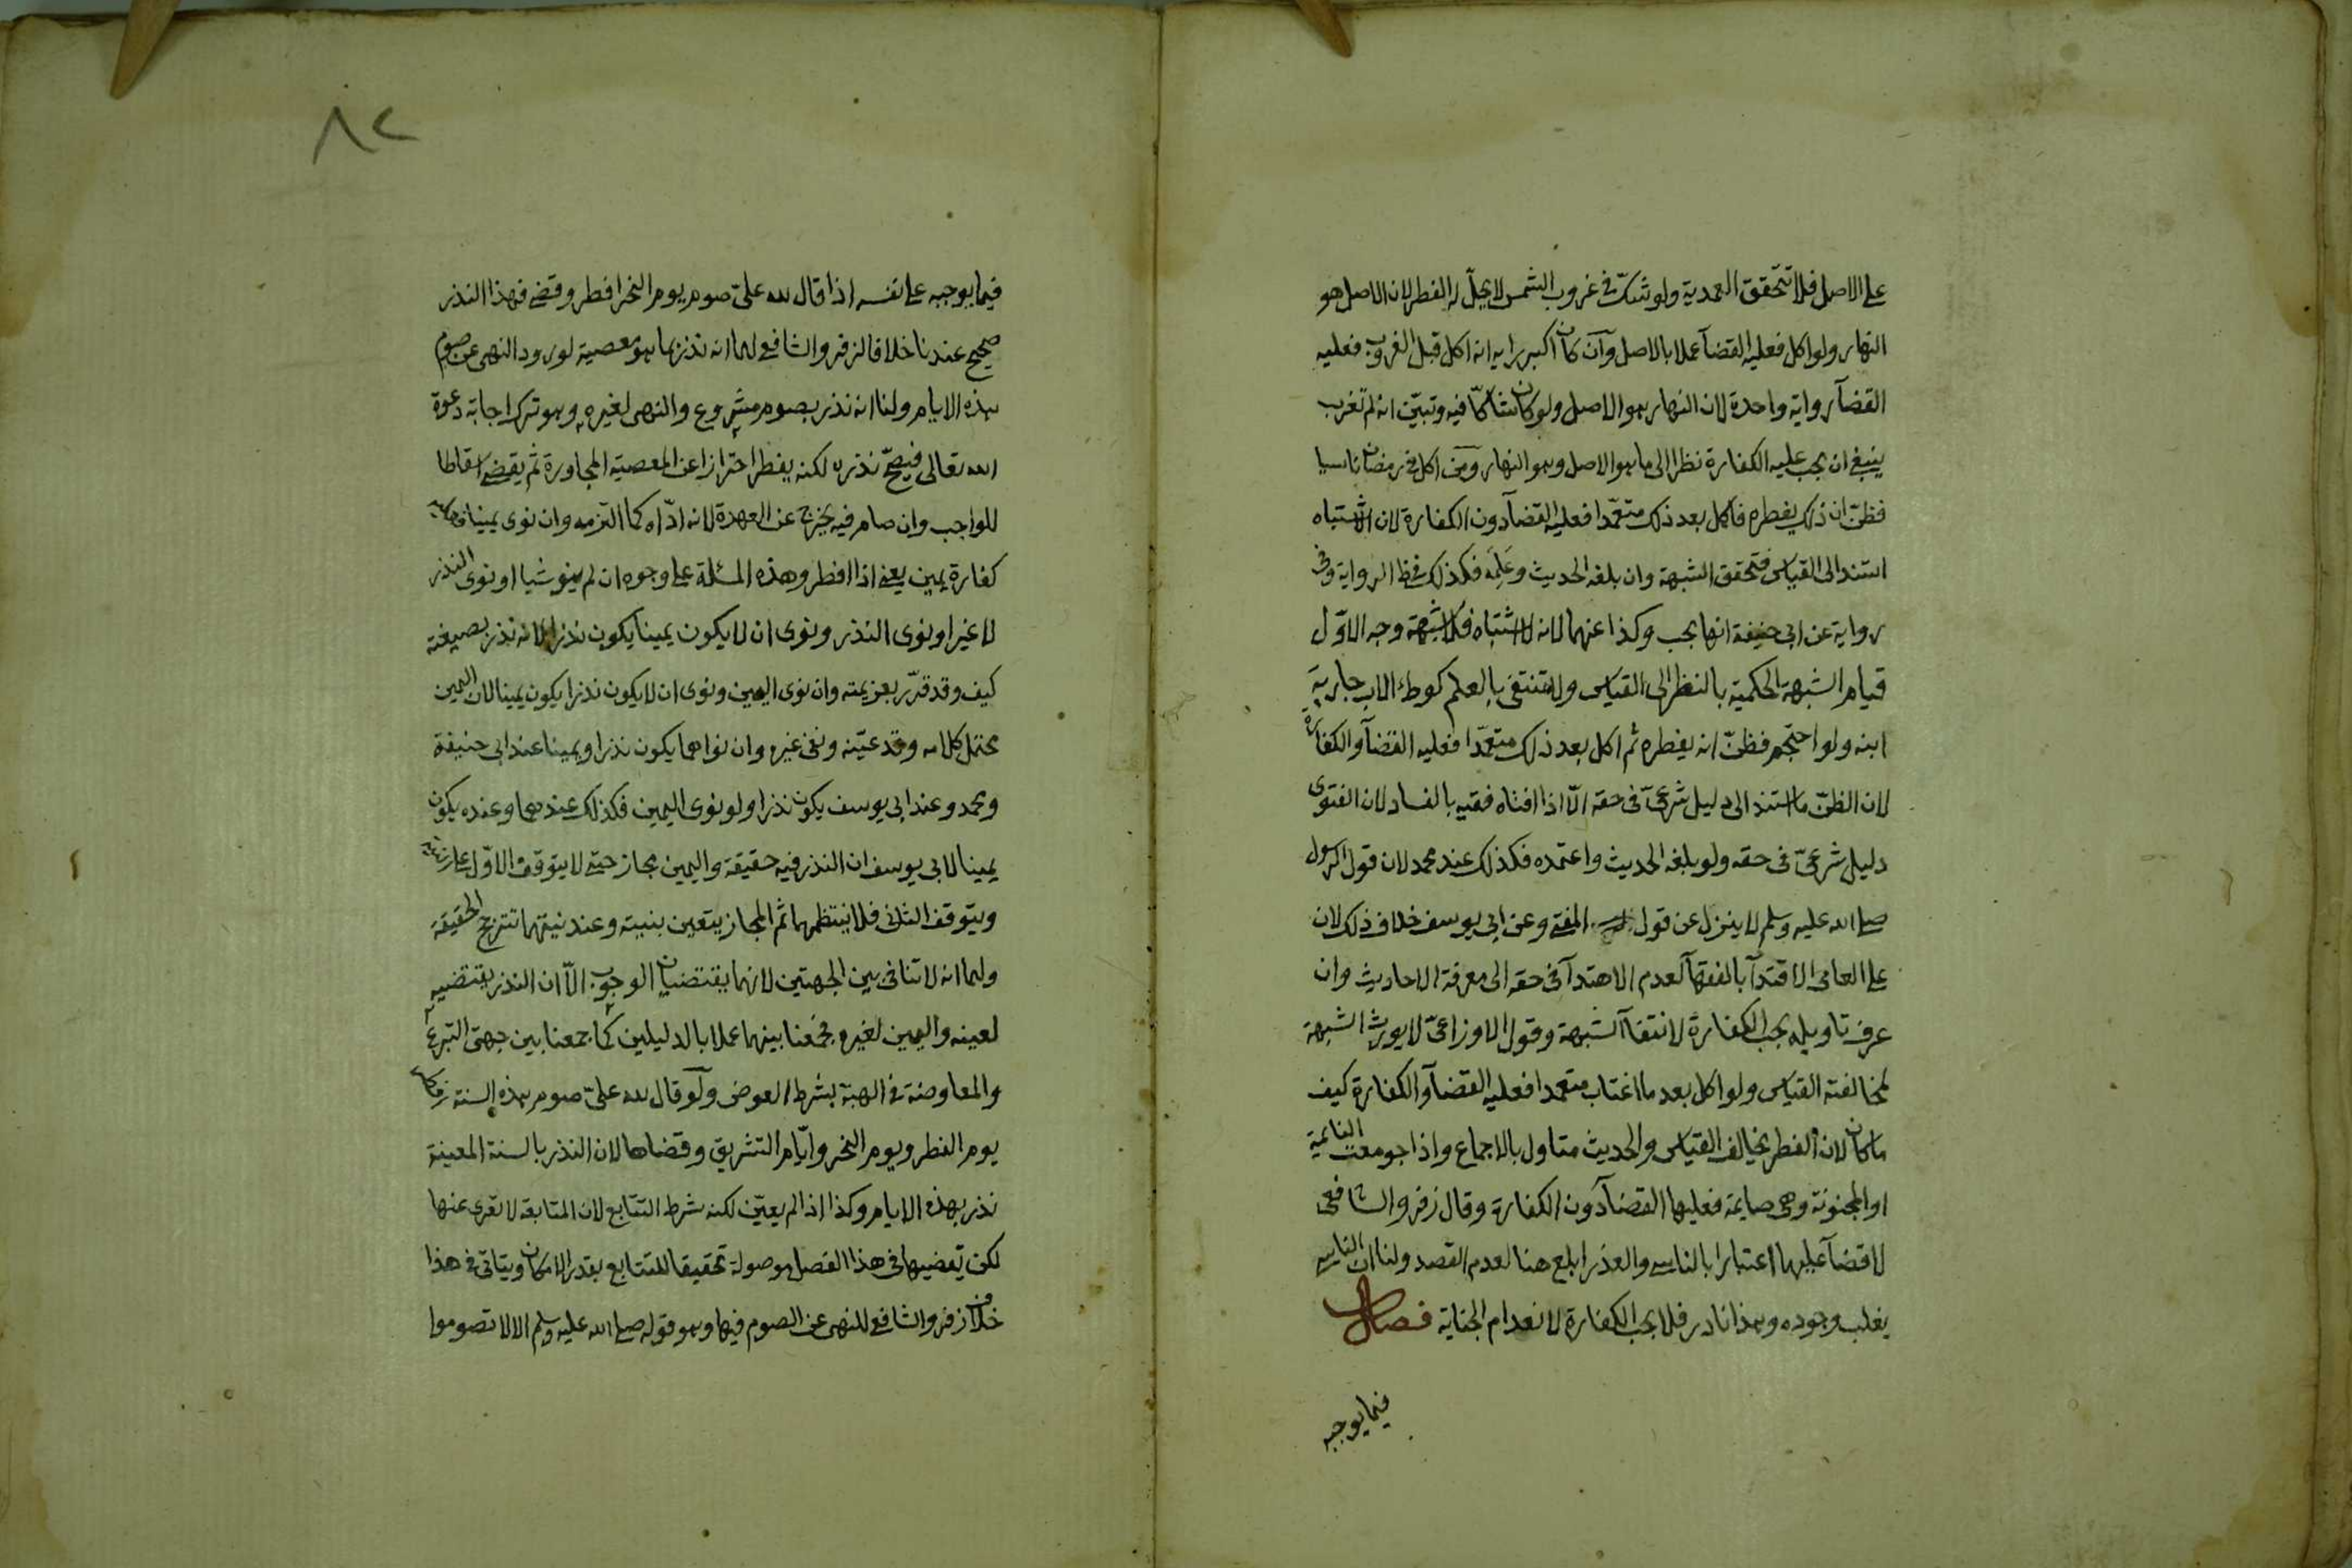 على الاصل فلا تتحقق العمدية ولو شكّ فى غروب الشمس لا يحلّ له الفطر لان الاصل هو
النهار ولو اكل فعليه القضآ عملا بالاصل وآن كان اكبر رايه انه اكل قبل الغروب فعليه
القضآ رواية واحدة لان النهار هو الاصل ولو كان شاكّا فيه وتبيّن انه لم تغرب
ينبغى ان يجب عليه الكفارة نظرا الى ما هو الاصل وهو النهار ومن اكل فى رمضان ناسيا
فظنّ ان ذلك يفطره فاكل بعد ذلك متعمّدا فعليه القضآ دون الكفارة لان الاشتباه
استند الى القياس فتحقق الشبهة وان بلغه الحديث وعَلِمَه فكذلك فى ظ الرواية وفى
رواية عن ابى حنيفة انها يجب وكذا عنهما لانه لا اشتباه فلا شبهة وجه الاوّل
قيام الشبهة الحكمية بالنظر الى القياس ولا تنتفى بالعلم كوطء الاب جارية
ابنه ولو احتجم فظنّ انه يفطره ثم اكل بعد ذلك متعمّدا فعليه القضآ والكفارة
لان الظنّ ما استند الى دليل شرعىّ فى حقه الّا اذا افتاه فقيه بالفساد لان الفتوى
دليل شرعىّ فى حقه ولو بلغه الحديث واعتمده فكذلك عند محمد لان قول الرسول
صلى الله عليه وسلم لا ينزل عن قول المفتى وعن ابى يوسف خلاف ذلك لان
على العامى الاقتدآ بالفقهآ لعدم الاهتدآ فى حقه الى معرفة الاحاديث وان
عرف تاويله يجب الكفارة لانتفآ الشبهة وقول الاوزاعىّ لا يورث الشبهة
لمخالفته القياس ولو اكل بعد ما اغتاب متعمدا فعليه القضآ والكفارة كيف
ما كان لان الفطر يخالف القياس والحديث متاول بالاجماع واذا جومعت النائمة
او المجنونة وهى صايمة فعليها القضآ دون الكفارة وقال زفر والشافعى
لا قضآ عليهما اعتبارا بالناسى والعذر ابلغ هنا لعدم القصد ولنا ان الناسى
يغلب وجوده وهذا نادر فلا يجب الكفارة لانعدام الجناية فصل
فيما يوجبه
٨٢
فيما يوجبه على نفسه اذا قال لله علىّ صوم يوم النحر افطر وقضى فهذا النذر
صحيح عندنا خلافا لزفر والشافعى لهما انه نذر بما هو معصية لورود النهى عن صوم
هذه الايام ولنا انه نذر بصوم مشروع والنهى لغيره وهو ترك اجابة دعوة
الله تعالى فيصحّ نذره لكنه يفطر احترازا عن المعصية المجاورة ثم يقضى اسقاطا
للواجب وان صام فيه يخرج عن العهدة لانه ادّاه كما التزمه وان نوى يمينا فعليه
كفارة يمين يعنى اذا افطر وهذه المسئلة على وجوه ان لم ينو شيا او نوى النذر
لا غير او نوى النذر ونوى ان لا يكون يمينا يكون نذرا لانه نذر بصيغته
كيف وقد قرّر بعزيمته وان نوى اليمين ونوى ان لا يكون نذرا يكون يمينا لان اليمين
محتمل كلامه وقد عيّنه ونفى غيره وان نواهما يكون نذرا ويمينا عند ابى حنيفة
ومحمد وعند ابى يوسف يكون نذرا ولو نوى اليمين فكذلك عندهما وعنده يكون
يمينا لابى يوسف ان النذر فيه حقيقة واليمين مجاز حتى لا يتوقف الاوّل على نيته
ويتوقف الثانى فلا ينتظمهما ثم المجاز يتعين بنيته وعند نيتهما تترجح الحقيقة
ولهما انه لا تنافى بين الجهتين لانهما يقتضيان الوجوب الّا ان النذر يقتضيه
لعينه واليمين لغيره فجمعنا بينهما عملا بالدليلين كما جمعنا بين جهتى التبرع
والمعاوضة فى الهبة بشرط العوض ولو قال لله علىّ صوم هذه السنة
يوم الفطر ويوم النحر وايّام التشريق وقضاها لان النذر بالسنة المعينة
نذر بهذه الايام وكذا اذا لم يعيّن لكنه شرط التتابع لان المتابعة لا تعرى عنها
لكن يقضيها فى هذا الفصل موصولة تحقيقا للتتابع بقدر الامكان ويتاتى فى هذا
خلاف زفر والشافعى للنهى عن الصوم فيها وهو قوله صلى الله عليه وسلم الا لا تصوموا